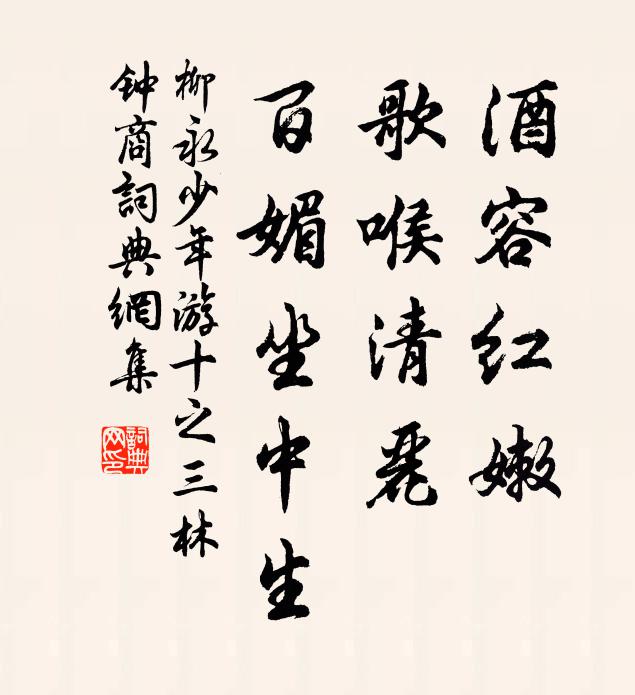 酒容红嫩
歌喉清麗
百媚坐中生
柳永少年游十之三林
钟商詞典網集
詞典网印